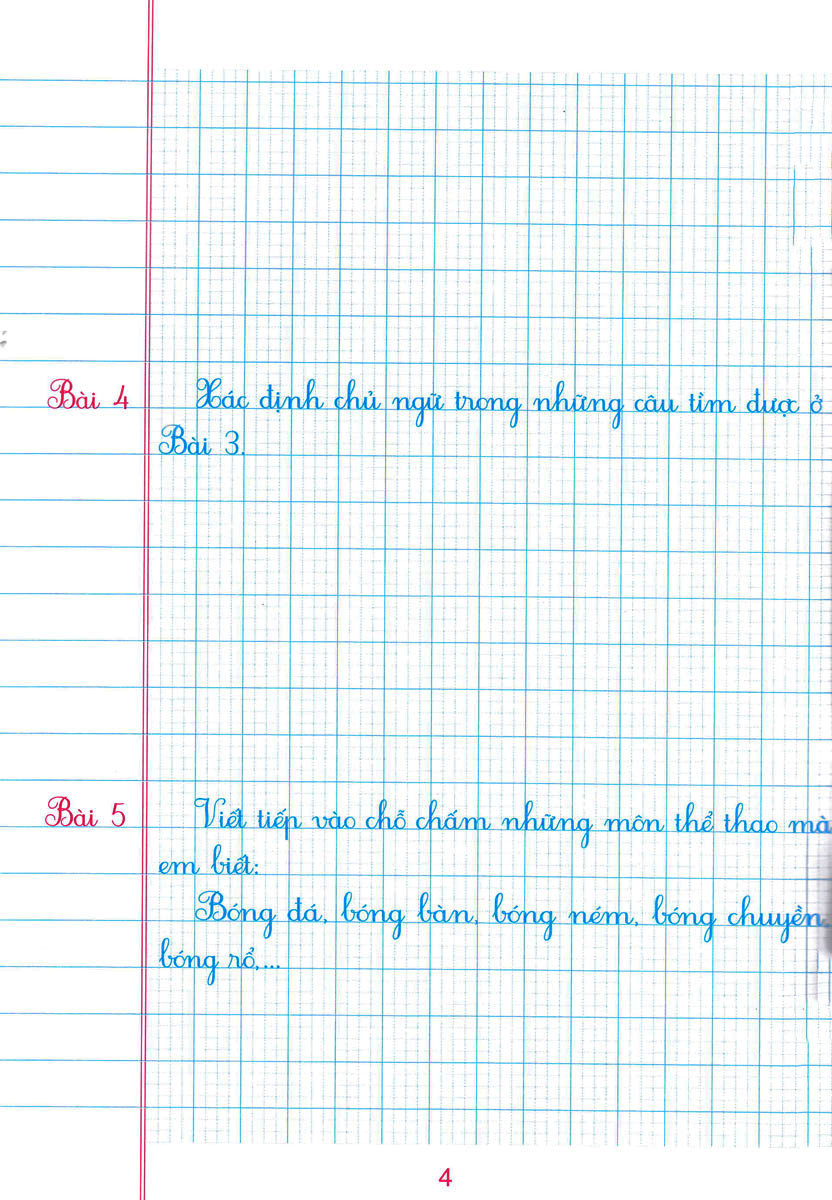 Bài 4 Xác định chủ ngữ trong những câu tìm được ở
Bài 3.
Bài 5 Viết tiếp vào chỗ chấm những môn thể thao mà
em biết:
Bóng đá, bóng bàn, bóng ném, bóng chuyền,
bóng rổ,...
4